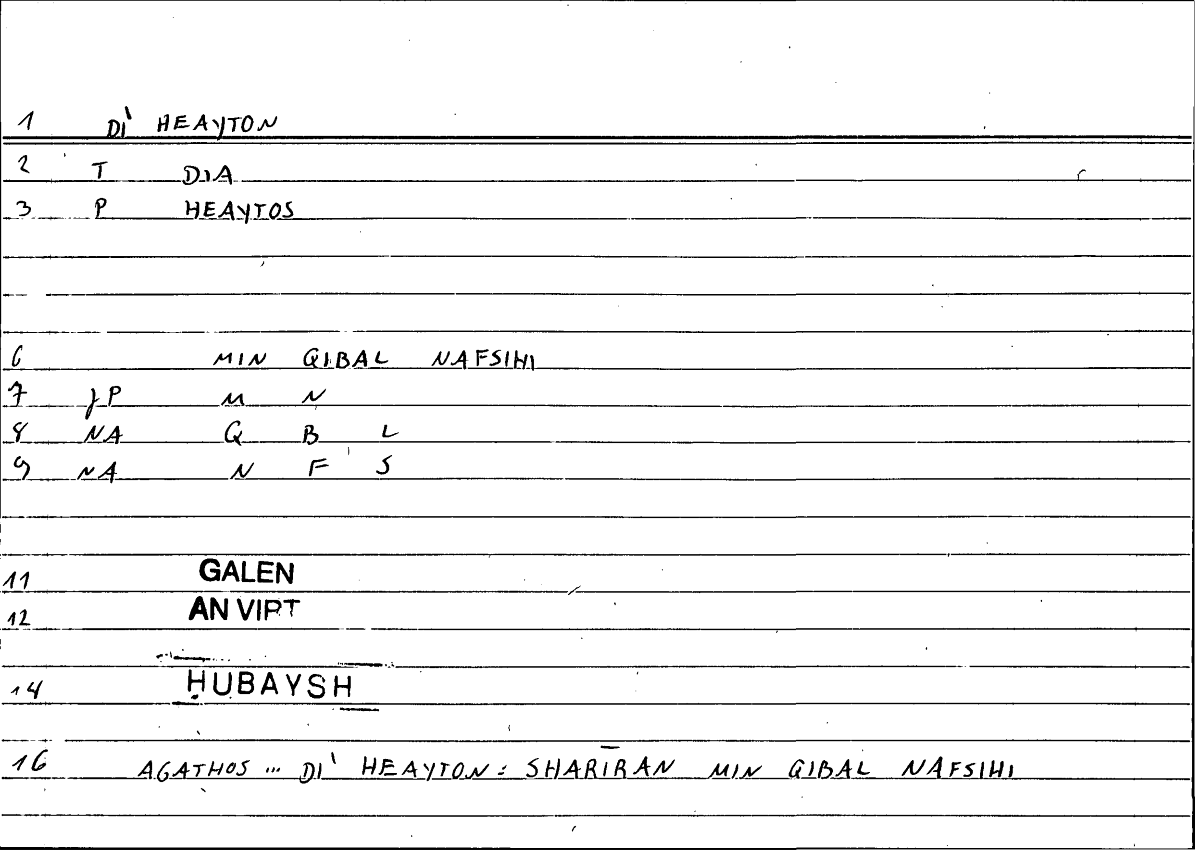 1 DI' HEAYTON
2 T DIA
3 P HEAYTOS
6 MIN QIBAL NAFSIHI
7 JP M N
8 NA Q B L
9 NA N F S
11 GALEN
12 AN VIRT
14 ḤUBAYSH
16 AGATHOS ... DI' HEAYTON: SHARĪRAN MIN QIBAL NAFSIHI